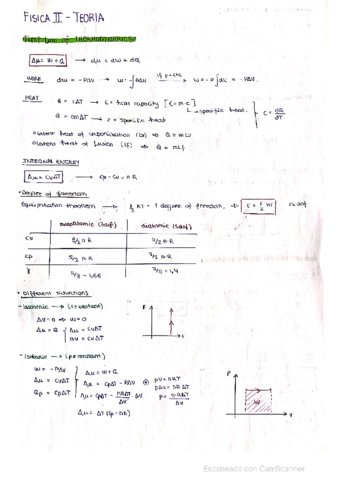 FISICA II - TEORIA
FIRST LAW OF THERMODYNAMICS
Δu = W + Q → du = dw + dQ
WORK dw = -PdV → W = -∫PdV if p=cte → W = -P∫dV = -PΔV.
HEAT Q = CΔT → C = heat capacity [C = m·c]
Q = cmΔT → c = specific heat
↳ specific heat.
C = dQ/dT
o Latent heat of vaporization (Lv) ⇒ Q = mLv
o Latent heat of fusion (Lf) ⇒ Q = mLf
INTERNAL ENERGY
Δu = CvΔT → Cp - Cv = nR
• Degree of freedom
Equipartition theorem → 1/2 KT = 1 degree of freedom, ⇒ E = f/2 KT
monoatomic (3dof) diatomic (5dof)
Cv 3/2 nR 5/2 nR
Cp 5/2 nR 7/2 nR
γ 5/3 = 1,66 7/5 = 1,4
• Different situations
- Isochoric → (V = constant)
ΔV = 0 ⇒ W = 0
Δu = Q { Δu = CvΔT
nV = CvΔT
P
- Isobaric → (p = constant)
W = -PΔV
Δu = CvΔT
Qp = CpΔT
Δu = W + Q
Δu = CpΔT - PΔV
Δu = CpΔT - nRΔT/ΔV · ΔV
Δu = ΔT (Cp - nR)
pV = nRT
pΔV = nRΔT
p = nRΔT/ΔV
P
W
V
Escaneado con CamScanner